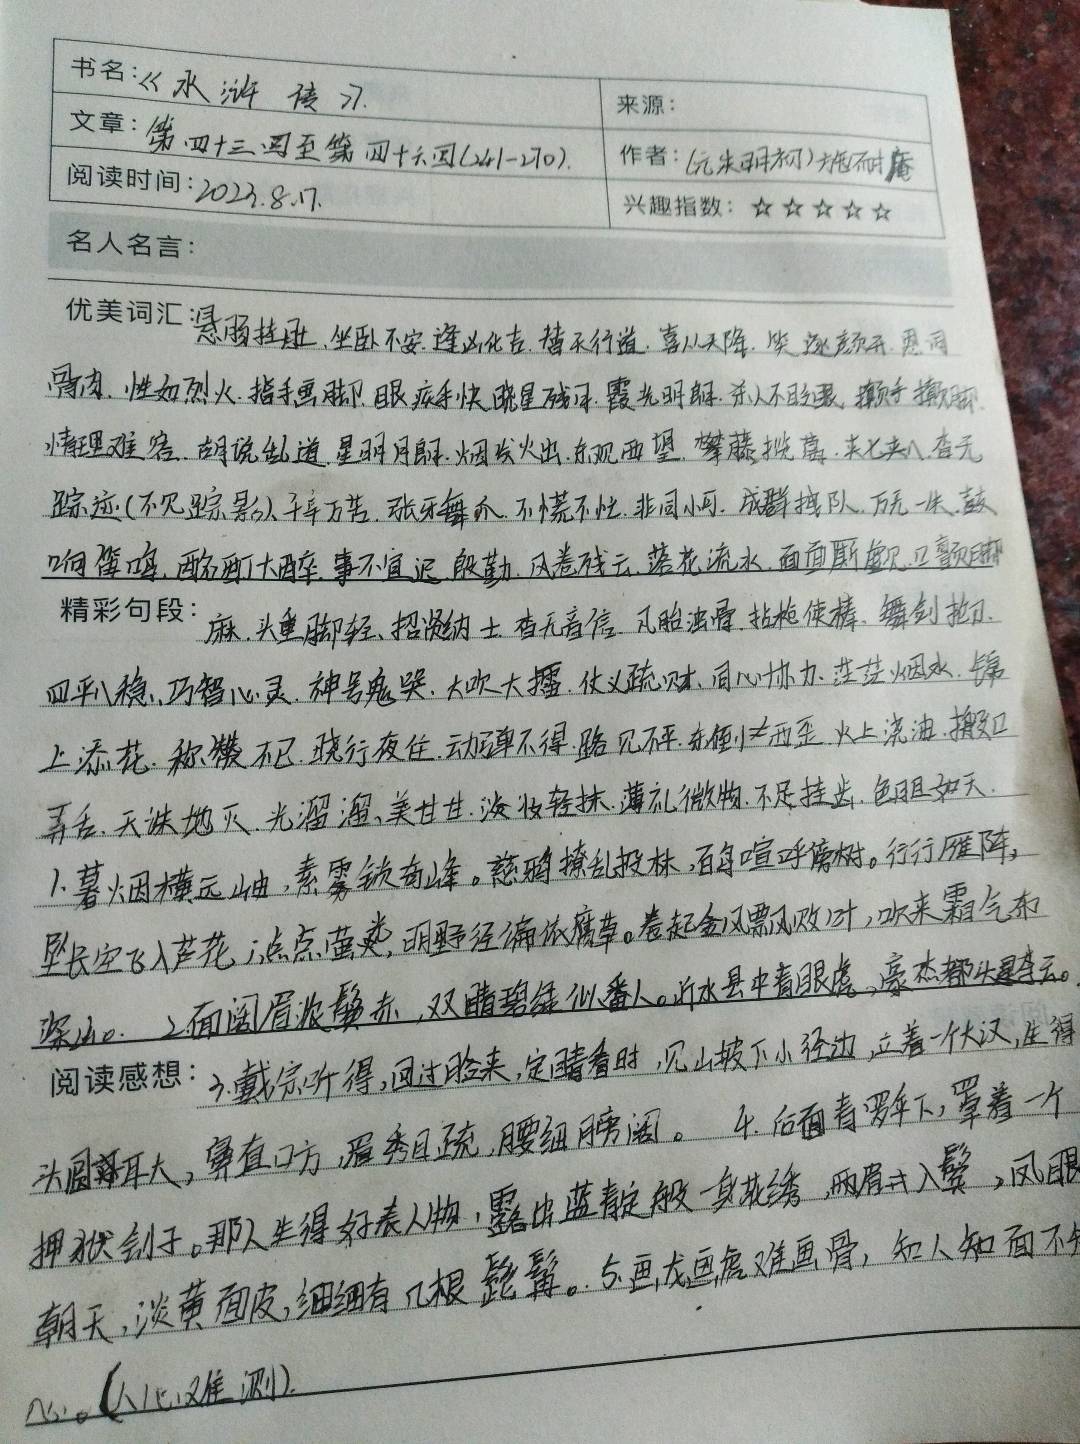 书名：《水浒传》.
来源：
文章：第四十三回至第四十六回(241-270).
作者：(元末明初)施耐庵
阅读时间：2023.8.17.
兴趣指数：☆☆☆☆☆
名人名言：
优美词汇：悬肠挂肚、坐卧不安.逢凶化吉.替天行道.喜从天降.笑逐颜开.恩同
骨肉.性如烈火.指手画脚.眼疾手快.晓星残月.霞光明朗.杀人不眨眼.攧手攧脚.
情理难容.胡说乱道.星明月朗.烟发火出.东观西望.攀藤揽葛.夹七夹八.杳无
踪迹(不见踪影).千辛万苦.张牙舞爪.不慌不忙.非同小可.成群拽队.万无一失.鼓
响锣鸣.酩酊大醉.事不宜迟.殷勤.风卷残云.落花流水.面面厮觑.口颤脚
精彩句段：麻.头重脚轻、招贤纳士.杳无音信.凡胎浊骨.拈枪使棒.舞剑抡刀.
四平八稳、巧智心灵.神号鬼哭.大吹大擂.仗义疏财.同心协力.茫茫烟水.锦
上添花.称赞不已.晓行夜住.动弹不得.路见不平.东倒西歪.火上浇油.搬口
弄舌.天诛地灭.光溜溜、美甘甘.淡妆轻抹.薄礼微物.不足挂齿.色胆如天.
1.暮烟横远岫，素雾锁奇峰。慈鸦撩乱投林，百鸟喧呼傍树。行行雁阵，
坠长空飞入芦花；点点萤光，明野径偏依腐草。卷起金风飘败叶，吹来霜气布
深山。 2.面阔眉浓鬓赤，双睛碧绿似番人。沂水县中青眼虎，豪杰都头是李云。
阅读感想：3.戴宗听得，回过脸来，定睛看时，见山坡下小径边，立着一个大汉，生得
头圆耳大，鼻直口方，眉秀目疏，腰细膀阔。 4.后面青罗伞下，罩着一个
押狱刽子。那人生得好表人物，露出蓝靛般一身花绣，两眉入鬓，凤眼
朝天，淡黄面皮，细细有几根髭髯。5.画龙画虎难画骨，知人知面不知
心。(人心难测).